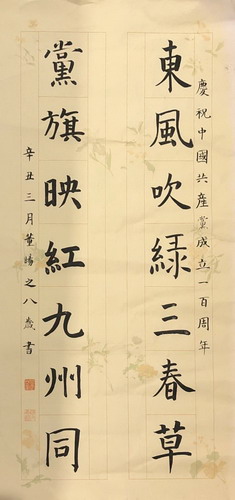 慶祝中國共產黨成立一百周年
東風吹綠三春草
黨旗映紅九州同
辛丑三月董晴之八歲書